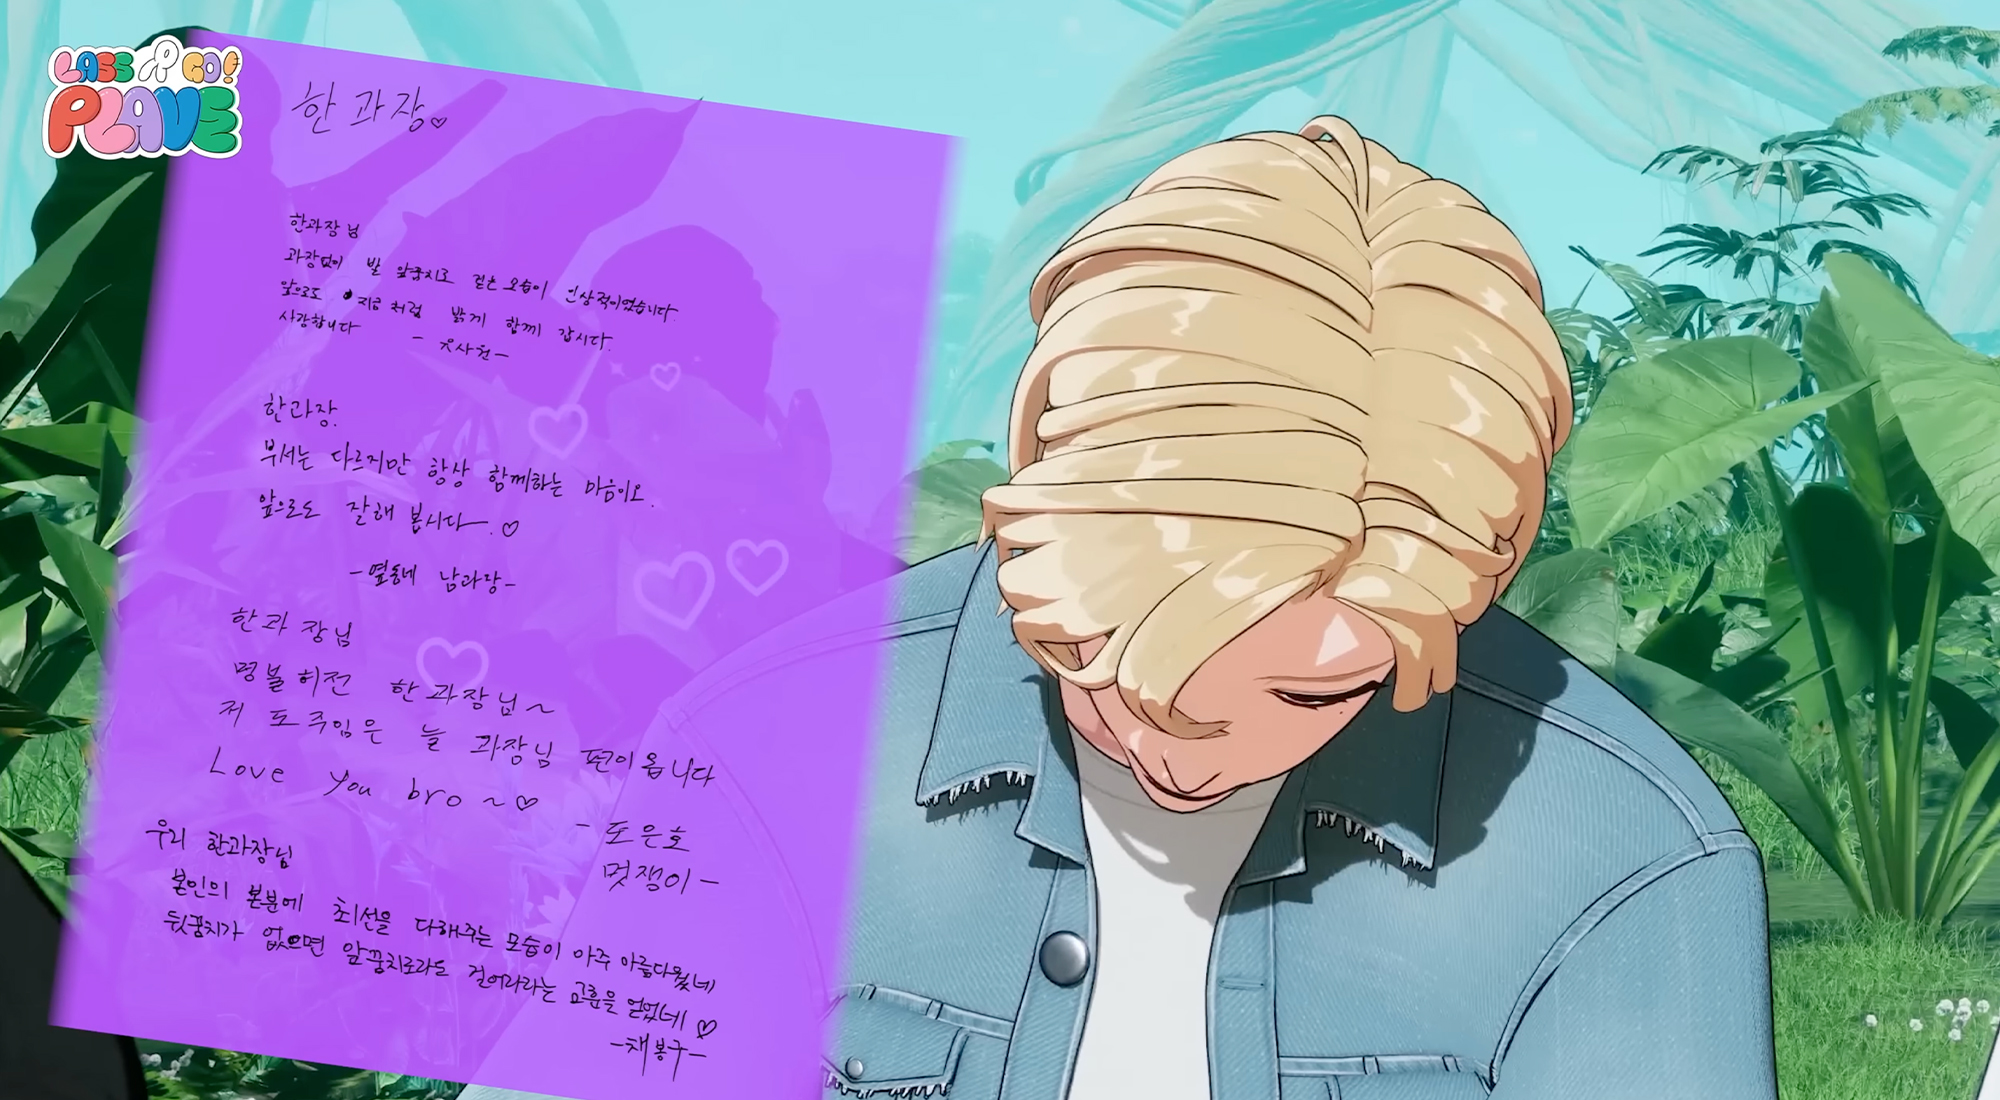 LASS GO!
PLAVE
한 과장♡
한과장님
과장없이 발 앞꿈치로 걷는 모습이 인상적이었습니다.
앞으로도 지금처럼 밝게 함께 갑시다.
사랑합니다
한과장.
부서는 다르지만 항상 함께하는 마음이오.
앞으로도 잘해 봅시다. ♡
-옆동네 남과장-
한과장님
명불허전 한과장님~
저 도주임은 늘 과장님 편이옵니다
Love you bro ~♡
- 도은호
멋쟁이-
우리 한과장님
본인의 본분에 최선을 다해주는 모습이 아주 아름다웠네
뒷꿈치가 없으면 앞꿈치로라도 걸어라라는 교훈을 얻었네 ♡
-채봉구-